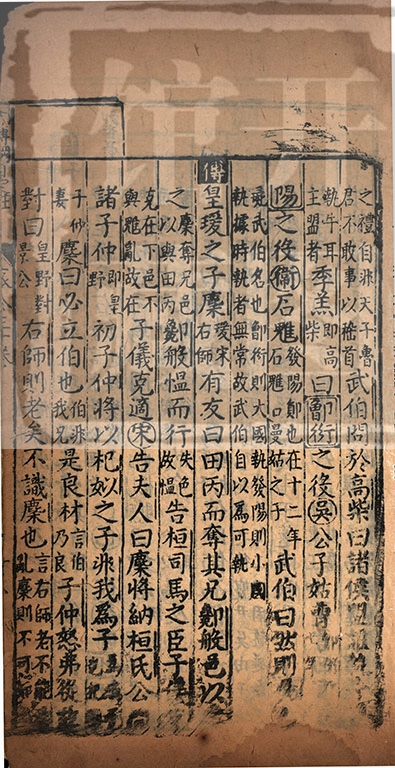 之禮自非天子魯君不敢事以稽首武伯問於高柴曰諸侯盟
執牛耳主盟者季羔即高柴曰鄫衍之役吳公子姑曹
陽之役衛石魋發陽鄭也在十二年石魋石曼姑之子武伯曰然則
彘武伯名也鄫衍則大國執發陽則小國執據時執者無常故武伯自以為可執
傳皇瑗之子麇瑗宋右師有友曰田丙而奪其兄酁般邑以
之麇奪兄邑以與田丙酁般慍而行失色故慍告桓司馬之臣子
克在下邑不與難亂故在子儀克適宋告夫人曰麇將納桓氏公
諸子仲即皇野初子仲將以杞姒之子非我為子
子仲妻麇曰必立伯也伯非我兄是良材言伯乃良子仲怒弗從
對曰皇野對景公右師則老矣不識麇也言右師老不能亂麇則不可知